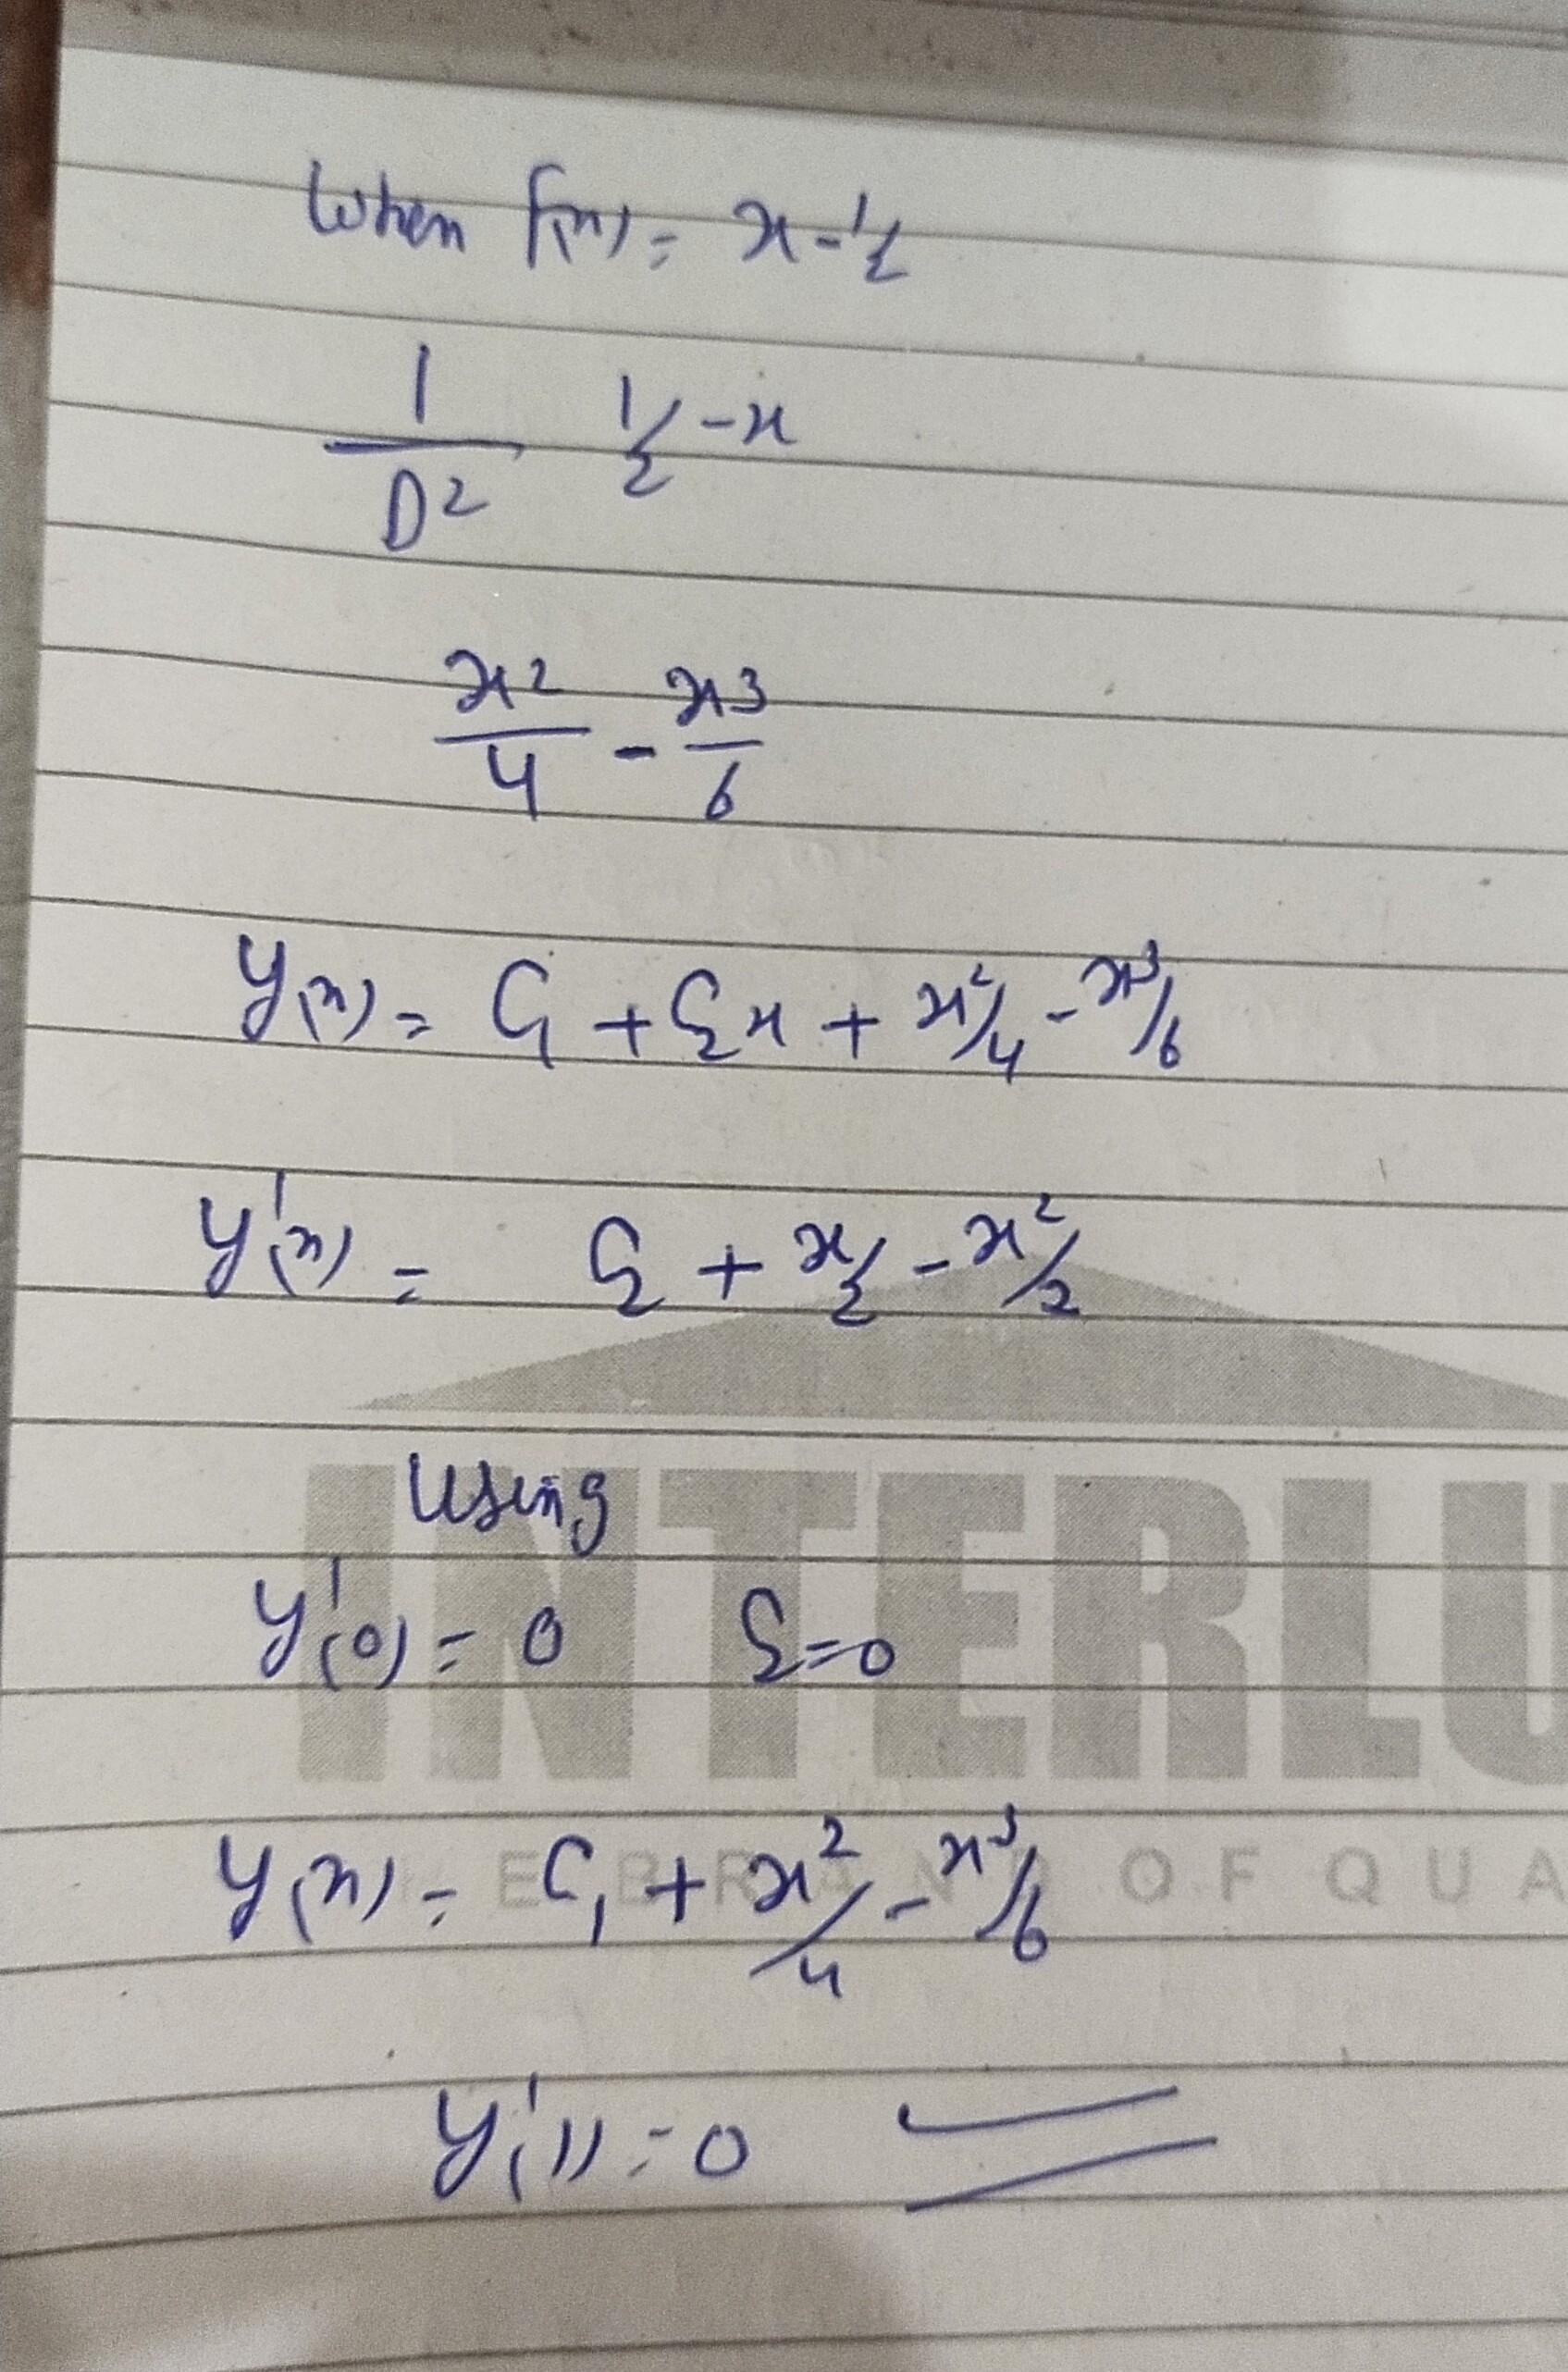 When f(x) = x - 1/2
1/D² 1/2 - x
x²/4 - x³/6
y(x) = C₁ + C₂x + x²/4 - x³/6
y'(x) = C₂ + x/2 - x²/2
Using
y'(0) = 0 C₂=0
y(x) = C₁ + x²/4 - x³/6
y'(1) = 0
INTERLU
E BRAND OF QUA